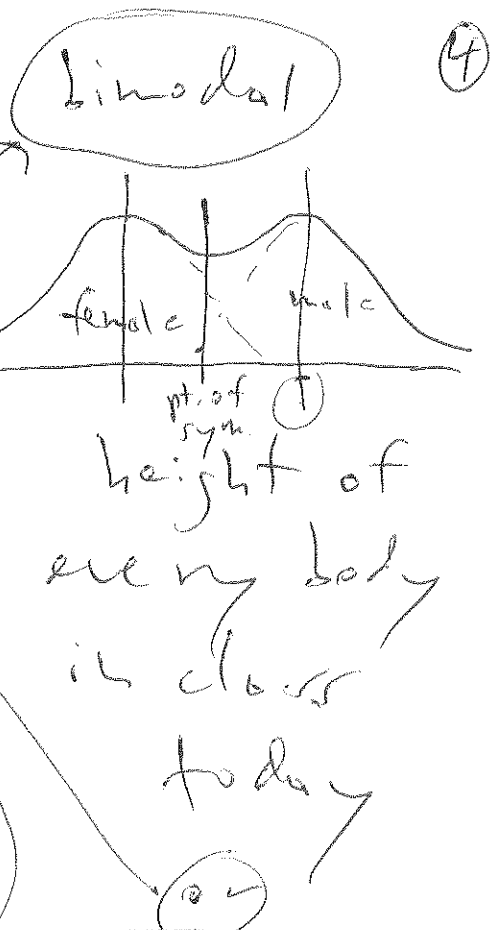 bimodal
4
female
male
pt. of
sym.
height of
every body
in class
today